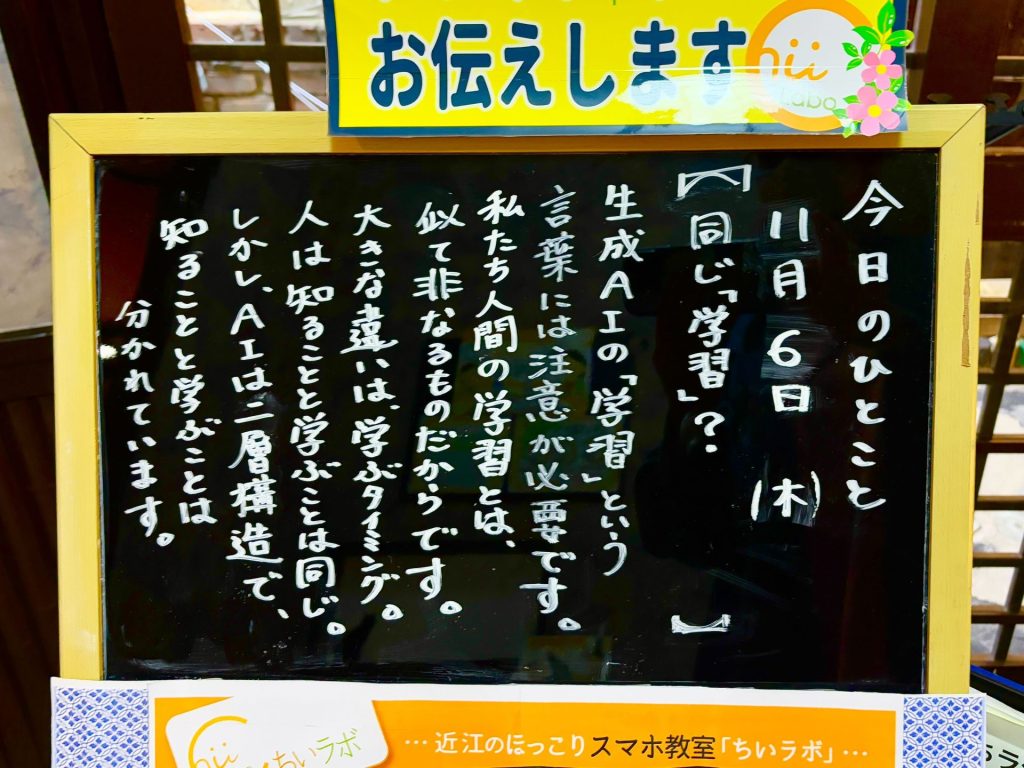 お伝えします
hii
Labo
今日のひとこと
11月6日(木)
【同じ「学習」?】
生成AIの「学習」という
言葉には注意が必要です。
私たち人間の学習とは、
似て非なるものだからです。
大きな違いは、学ぶタイミング。
人は知ることと学ぶことは同じ。
しかし、AIは二層構造で、
知ることと学ぶことは
分かれています。
ちいラボ
…近江のほっこりスマホ教室「ちいラボ」…